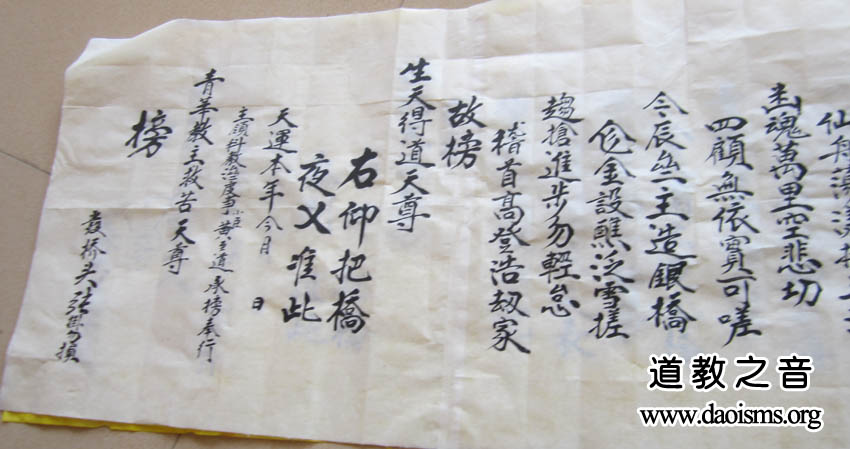 仙舟蕩漾
幽魂萬里空悲切
四顧無依實可嗟
今辰齋主造銀橋
金設醮泛雪槎
趨搶進步勿輕怠
稽首高登浩劫家
故榜
生天得道天尊
右仰把橋
夜乂准此
天運本年今月 日
主領科教治度事臣黃道承榜奉行
青華教主救苦天尊
榜
橋頭張掛勿損
道教之音
www.daoisms.org